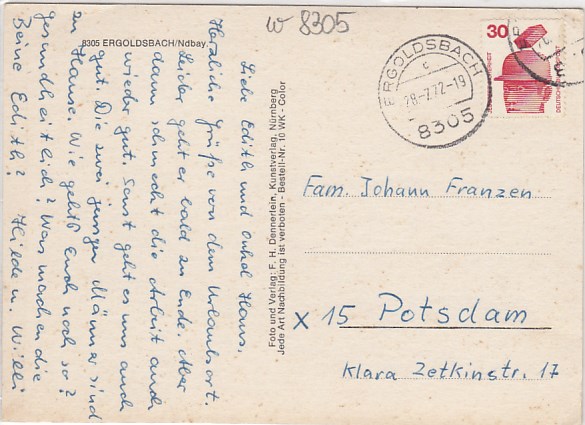 w 8305
8305 ERGOLDSBACH/Ndbay.
Liebe Edith und Onkel Hans,
Herzliche Grüße von dem Urlaubsort.
Leider geht er bald zu Ende. Aber
dann schmeckt die Arbeit auch
wieder gut. Sonst geht es uns auch
gut. Die zwei jungen Männer sind
zu Hause. Wie geht's Euch noch so?
gesundheitlich? Was machen die
Beine Edith? Hilde u. Willi
Foto und Verlag: F. H. Dennerlein, Kunstverlag, Nürnberg
Jede Art Nachbildung ist verboten - Bestell-Nr. 10 WK - Color
ERGOLDSBACH
c
28-7.72-19
8305
30
DEUTSCHE
Fam. Johann Franzen
x 15 Potsdam
Klara Zetkinstr. 17